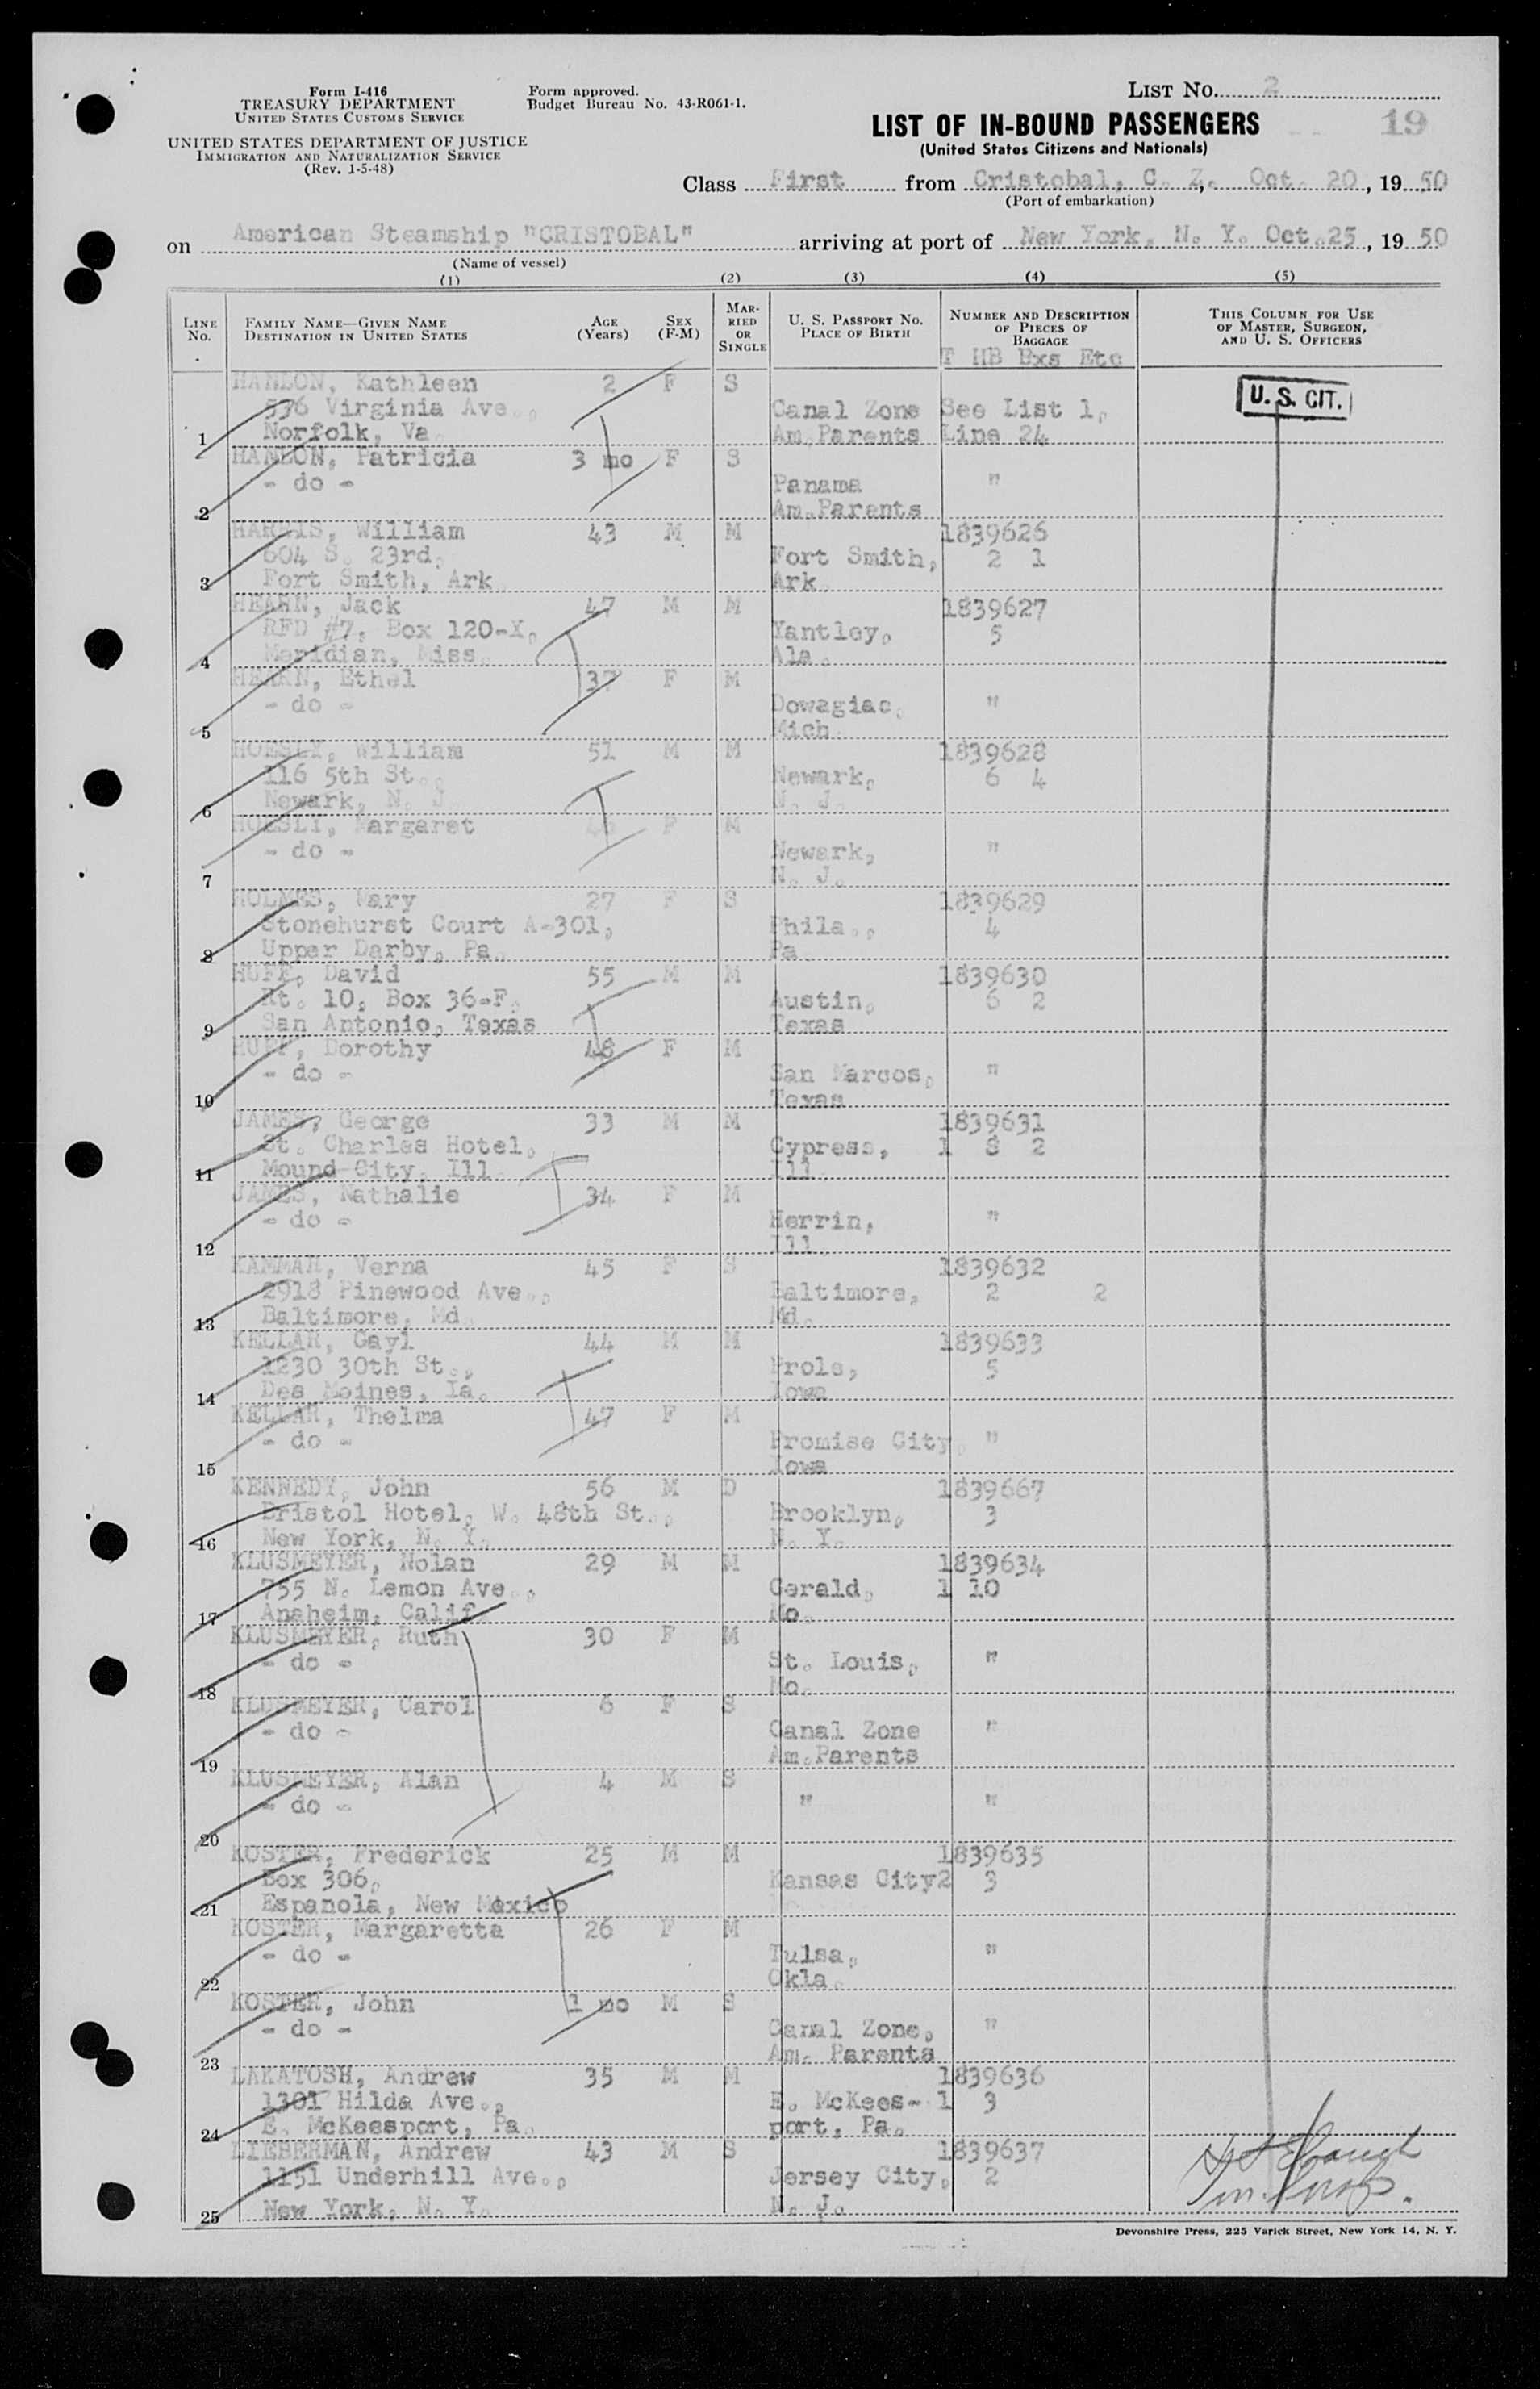 Form I-416
TREASURY DEPARTMENT
UNITED STATES CUSTOMS SERVICE
UNITED STATES DEPARTMENT OF JUSTICE
IMMIGRATION AND NATURALIZATION SERVICE
(Rev. 1-5-48)
Form approved.
Budget Bureau No. 43-R061-1.
LIST NO. 2
LIST OF IN-BOUND PASSENGERS
19
(United States Citizens and Nationals)
Class First from Cristobal, C. Z, Oct. 20, 19 50
(Port of embarkation)
on American Steamship "CRISTOBAL" arriving at port of New York, N. Y. Oct.25, 19 50
(Name of vessel)
(1) (2) (3) (4) (5)
LINE NO.
FAMILY NAME—GIVEN NAME
DESTINATION IN UNITED STATES
AGE (Years)
SEX (F-M)
MARRIED OR SINGLE
U. S. PASSPORT NO.
PLACE OF BIRTH
NUMBER AND DESCRIPTION OF PIECES OF BAGGAGE
T HB Bxs Etc
THIS COLUMN FOR USE OF MASTER, SURGEON, AND U. S. OFFICERS
U. S. CIT.
HANLON, Kathleen 2 F S
536 Virginia Ave., Canal Zone See List 1,
1 Norfolk, Va. Am.Parents Line 24
HANLON, Patricia 3 mo F S
- do - Panama "
2 Am.Parents
HARRIS, William 43 M M 1839626
604 S. 23rd, Fort Smith, 2 1
3 Fort Smith, Ark. Ark.
HEARN, Jack 47 M M 1839627
RFD #7, Box 120-X, Yantley, 5
4 Meridian, Miss. Ala.
HEARN, Ethel 37 F M
- do - Dowagiac, "
5 Mich.
HOESLY, William 51 M M 1839628
116 5th St., Newark, 6 4
6 Newark, N. J. N. J.
HOESLY, Margaret F M
- do - Newark, "
7 N. J.
HOLMES, Mary 27 F S 1839629
Stonehurst Court A-301, Phila., 4
8 Upper Darby, Pa. Pa.
HUFF, David 55 M M 1839630
Rt. 10, Box 36-F, Austin, 6 2
9 San Antonio, Texas Texas
HUFF, Dorothy 48 F M
- do - San Marcos, "
10 Texas
JAMES, George 33 M M 1839631
St. Charles Hotel, Cypress, 1 8 2
11 Mound City, Ill. Ill.
JAMES, Nathalie 34 F M
- do - Herrin, "
12 Ill.
KAMMAR, Verna 45 F S 1839632
2918 Pinewood Ave., Baltimore, 2 2
13 Baltimore, Md. Md.
KELLAR, Gayl 44 M M 1839633
1230 30th St., Prole, 5
14 Des Moines, Ia. Iowa
KELLAR, Thelma 47 F M
- do - Promise City, "
15 Iowa
KENNEDY, John 56 M D 1839667
Bristol Hotel, W. 48th St., Brooklyn, 3
16 New York, N. Y. N. Y.
KLUSMEYER, Nolan 29 M M 1839634
755 N. Lemon Ave., Gerald, 1 10
17 Anaheim, Calif. Mo.
KLUSMEYER, Ruth 30 F M
- do - St. Louis, "
18 Mo.
KLUSMEYER, Carol 6 F S
- do - Canal Zone "
19 Am.Parents
KLUSMEYER, Alan 4 M S
- do - " "
20
KOSTER, Frederick 25 M M 1839635
Box 306, Kansas City 2 3
21 Espanola, New Mexico
KOSTER, Margaretta 26 F M
- do - Tulsa, "
22 Okla.
KOSTER, John 1 mo M S
- do - Canal Zone, "
23 Am. Parents
LAKATOSH, Andrew 35 M M 1839636
1301 Hilda Ave., E. McKees- 1 3
24 E. McKeesport, Pa. port, Pa.
LIEBERMAN, Andrew 43 M S 1839637
1151 Underhill Ave., Jersey City, 2
25 New York, N. Y. N. J.
Devonshire Press, 225 Varick Street, New York 14, N. Y.